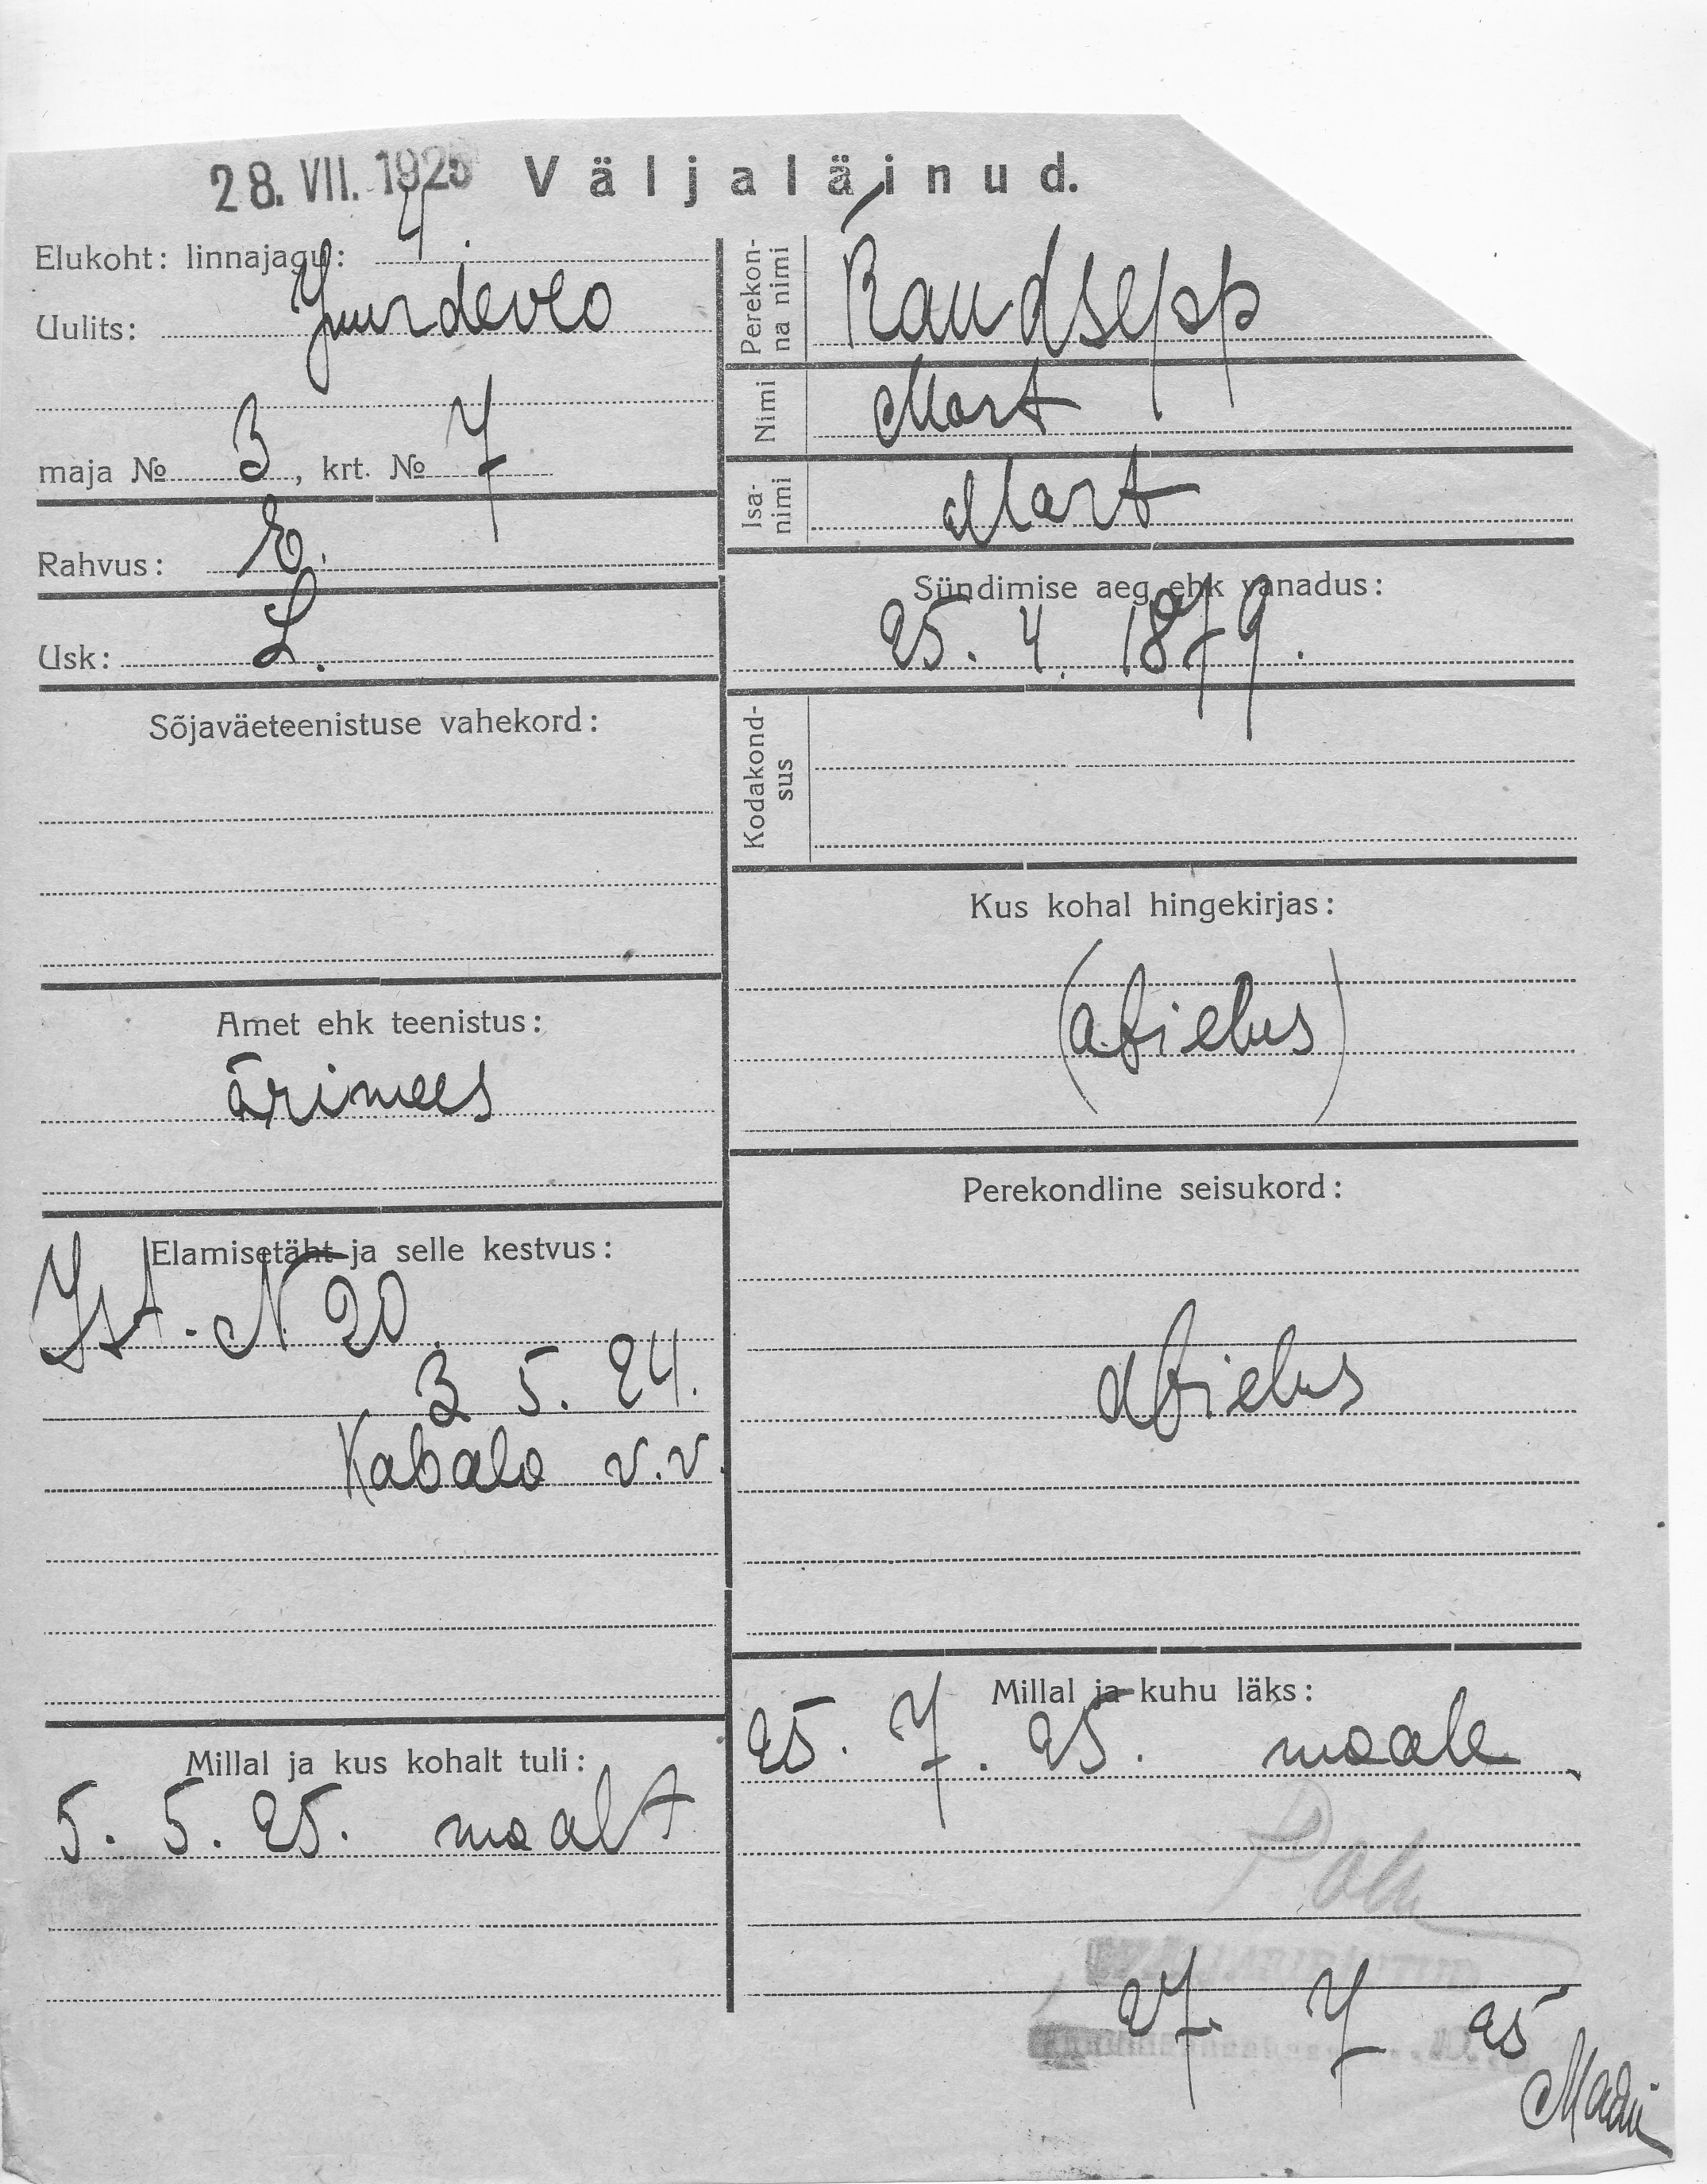 28. VII. 1925 Väljaläinud.
Elukoht: linnajagu: 4.
Uulits: Juurdeveo
maja № 3, krt. № 7
Rahvus: E.
Usk: L.
Sõjaväeteenistuse vahekord:
Amet ehk teenistus:
ärimees
Elamisetäht ja selle kestvus:
Ist. N 20.
3 5. 24.
Kabala v.v.
Millal ja kus kohalt tuli:
5. 5. 25. maalt
Perekon-
na nimi
Raudsepp
Nimi
Mart
Isa-
nimi
Mart
Sündimise aeg ehk vanadus:
25. 4. 1879.
Kodakond-
sus
Kus kohal hingekirjas:
(abielus)
Perekondline seisukord:
abielus
Millal ja kuhu läks:
25. 7. 25. maale
27. 7 25